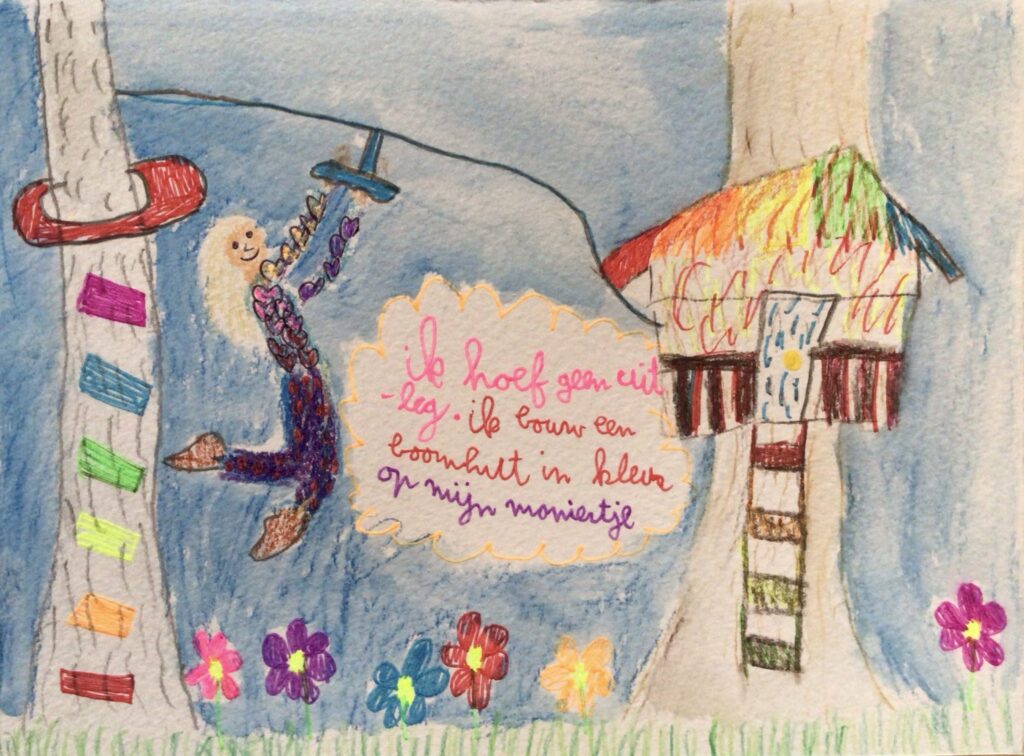 ik hoef geen uit
-leg. ik bouw een
boomhut in kleur
op mijn moniertje